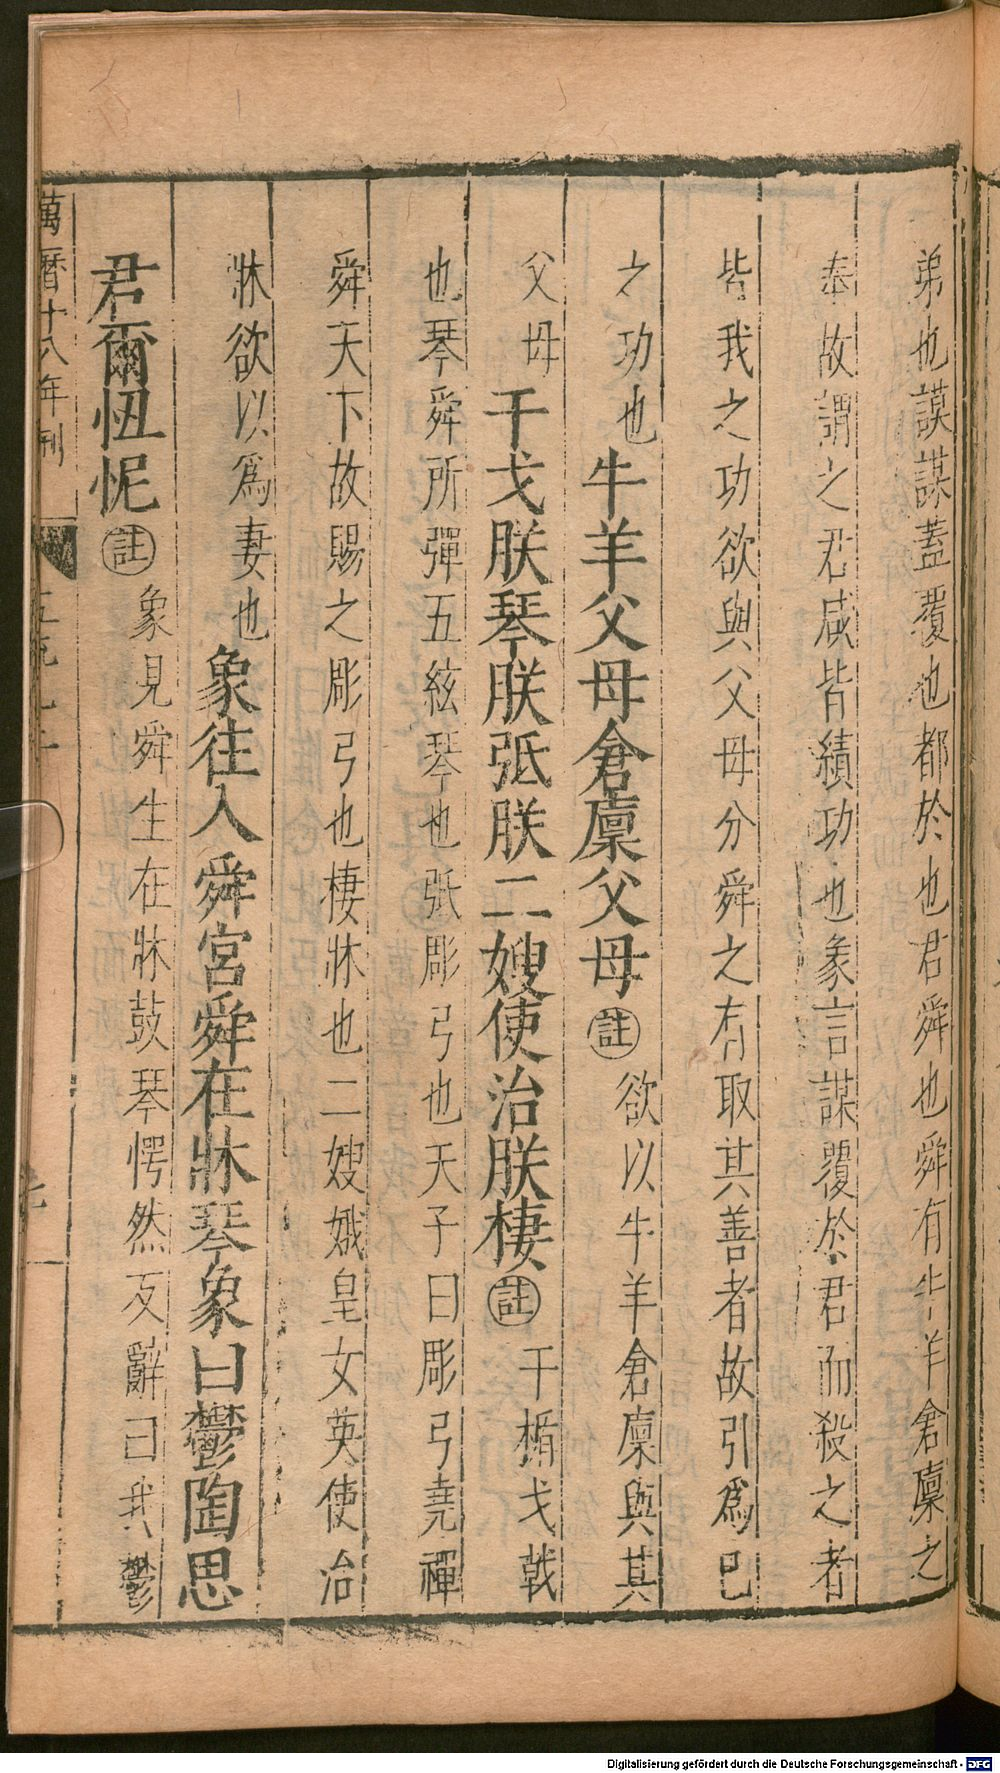 弟也謨謀蓋覆也都於也君舜也舜有牛羊倉廩之
奉故謂之君咸皆績功也象言謀覆於君而殺之者
皆我之功欲與父母分舜之有取其善者故引爲己
之功也牛羊父母倉廩父母註欲以牛羊倉廩與其
父母干戈朕琴朕弤朕二嫂使治朕棲註干楯戈戟
也琴舜所彈五絃琴也弤彫弓也天子曰彫弓堯禪
舜天下故賜之彫弓也棲牀也二嫂娥皇女英使治
牀欲以爲妻也象往入舜宮舜在牀琴象曰鬱陶思
君爾忸怩註象見舜生在牀鼓琴愕然反辭曰我鬱
萬曆十八年刊
Digitalisierung gefördert durch die Deutsche Forschungsgemeinschaft - DFG